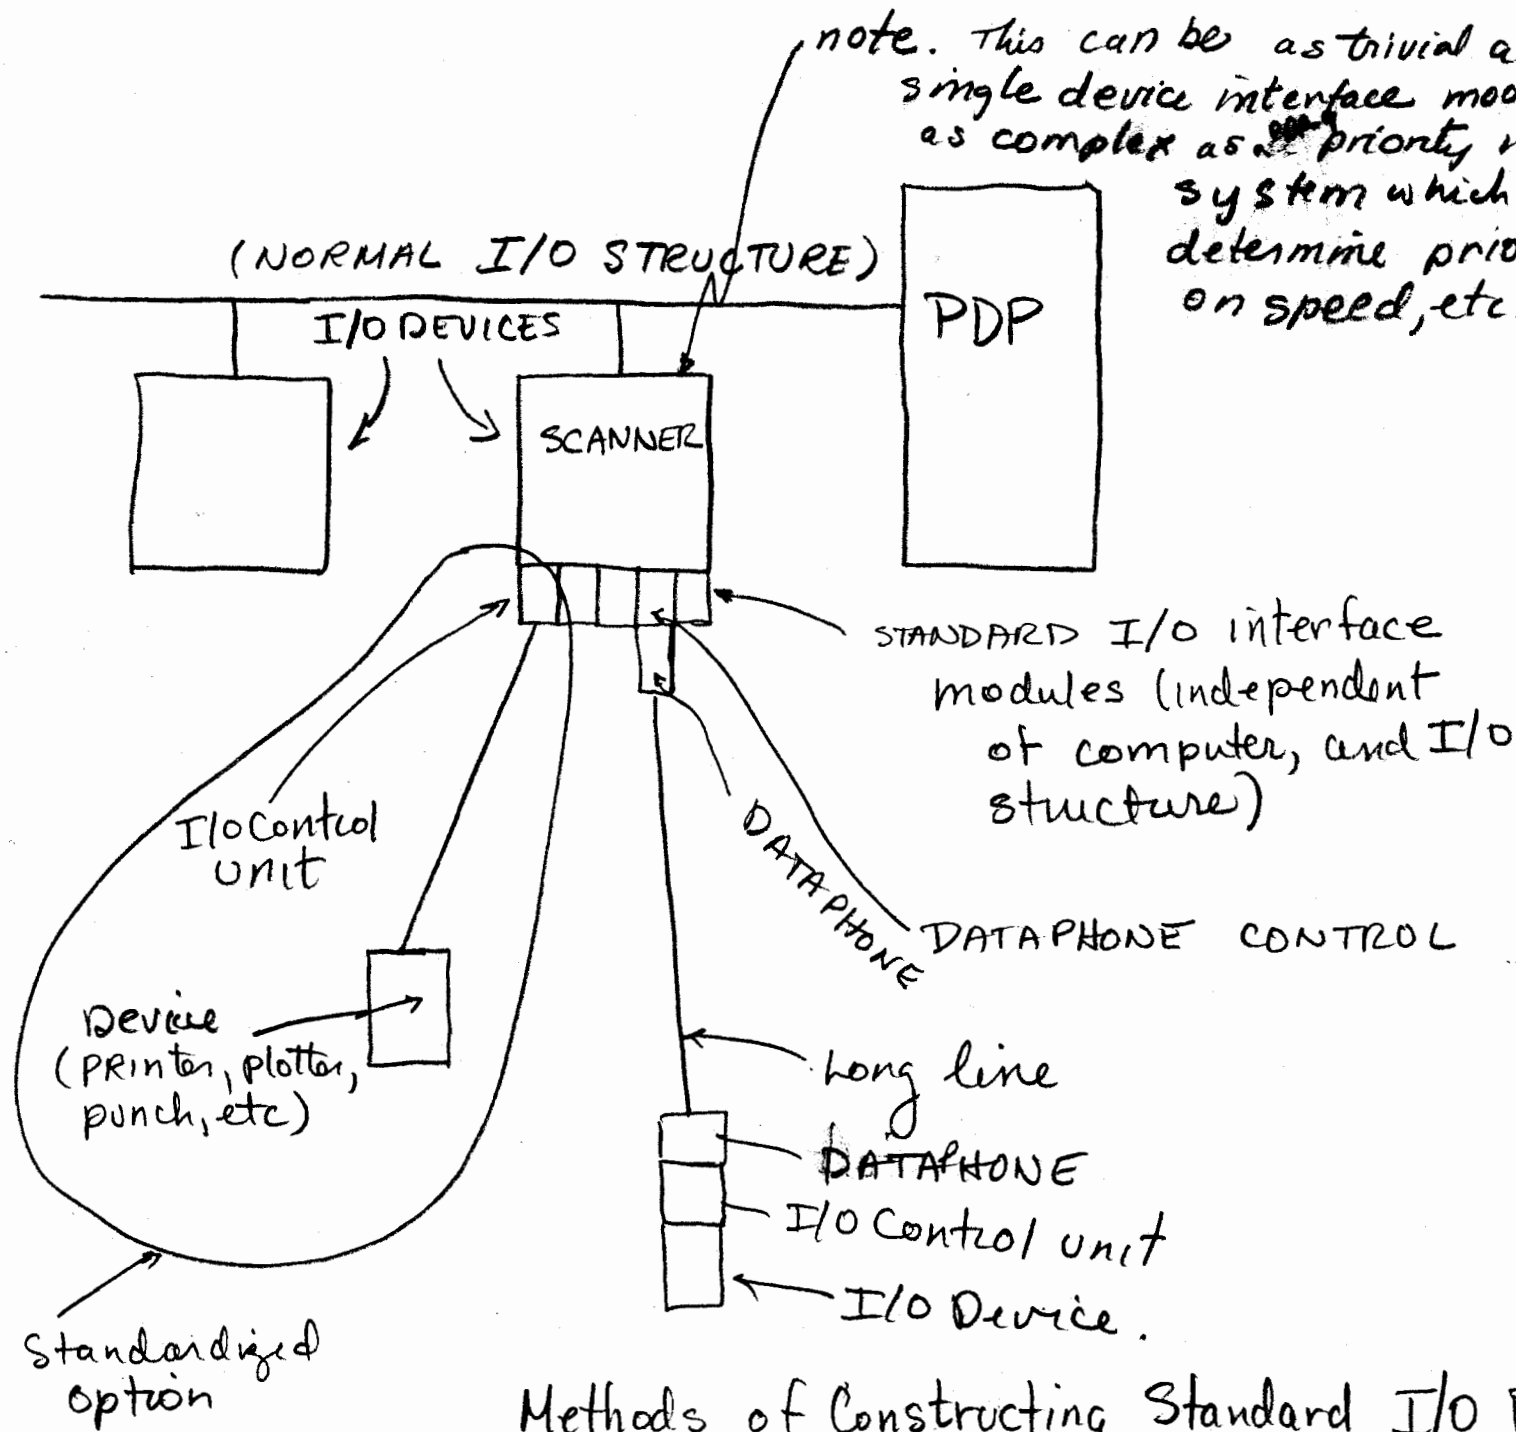 note. This can be as trivial a
single device interface mod
as complex as priority
system which
determine prio
on speed, etc
(NORMAL I/O STRUCTURE)
I/O DEVICES
PDP
SCANNER
STANDARD I/O interface
modules (independent
of computer, and I/O
structure)
I/O Control
unit
DATAPHONE
DATAPHONE CONTROL
Device
(PRinter, plotter,
punch, etc)
Long line
DATAPHONE
I/O Control unit
I/O Device.
Standardized
option
Methods of Constructing Standard I/O